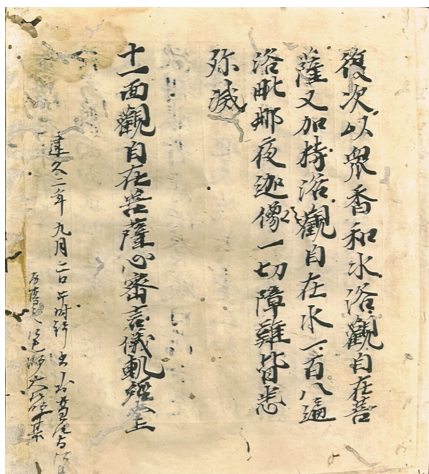 復次以衆香和水浴觀自在菩
薩又加持浴觀自在水一百八遍
浴毗那夜迦像一切障難皆悉
殄滅
十一面觀自在菩薩心密言儀軌經上
建久二年九月二日午時許